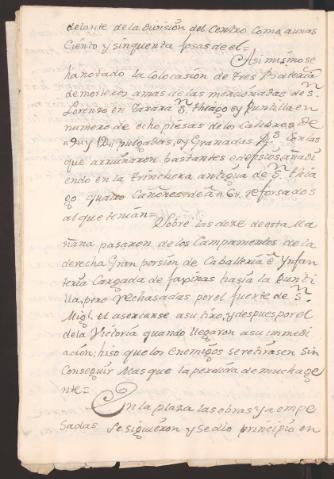 delante de la Divisiòn del Centro como aunas
Ciento y sinquenta fosas de el=
Asi mismo se
ha notado la Colocasion de tres Bateria
de morteros a mas de las mencionadas de S.
Lorenzo en tarara S. thiago, y Puntilla en
numero de ocho piesas de los Calibres de
9 y 12 pulgadas, y Granadas Rs. con las
que arruinaron bastantes edefisios, añadi
endo en la trinchera antigua de S. thia
go quatro Cañones de à 24 reforsados
al que tenian=
Sobre las dose de esta Ma
ñana pasaron de los Campamentos de la
derecha Gran porsion de Caballeria è Ynfan
teria Cargada de faxinas hasia la Punti
lla, pero rechasadas por el fuerte de S.
Migl. al asercarse asu tiro, y despues por el
de la Victoria quando llegaron asu inmedi
acion, hiso que los Enemigos se retirasen sin
Conseguir Mas que la perdida de mucha ge
nte=
En la plaza las obras ya empe
sadas se siguieron y se dio prinsipio en